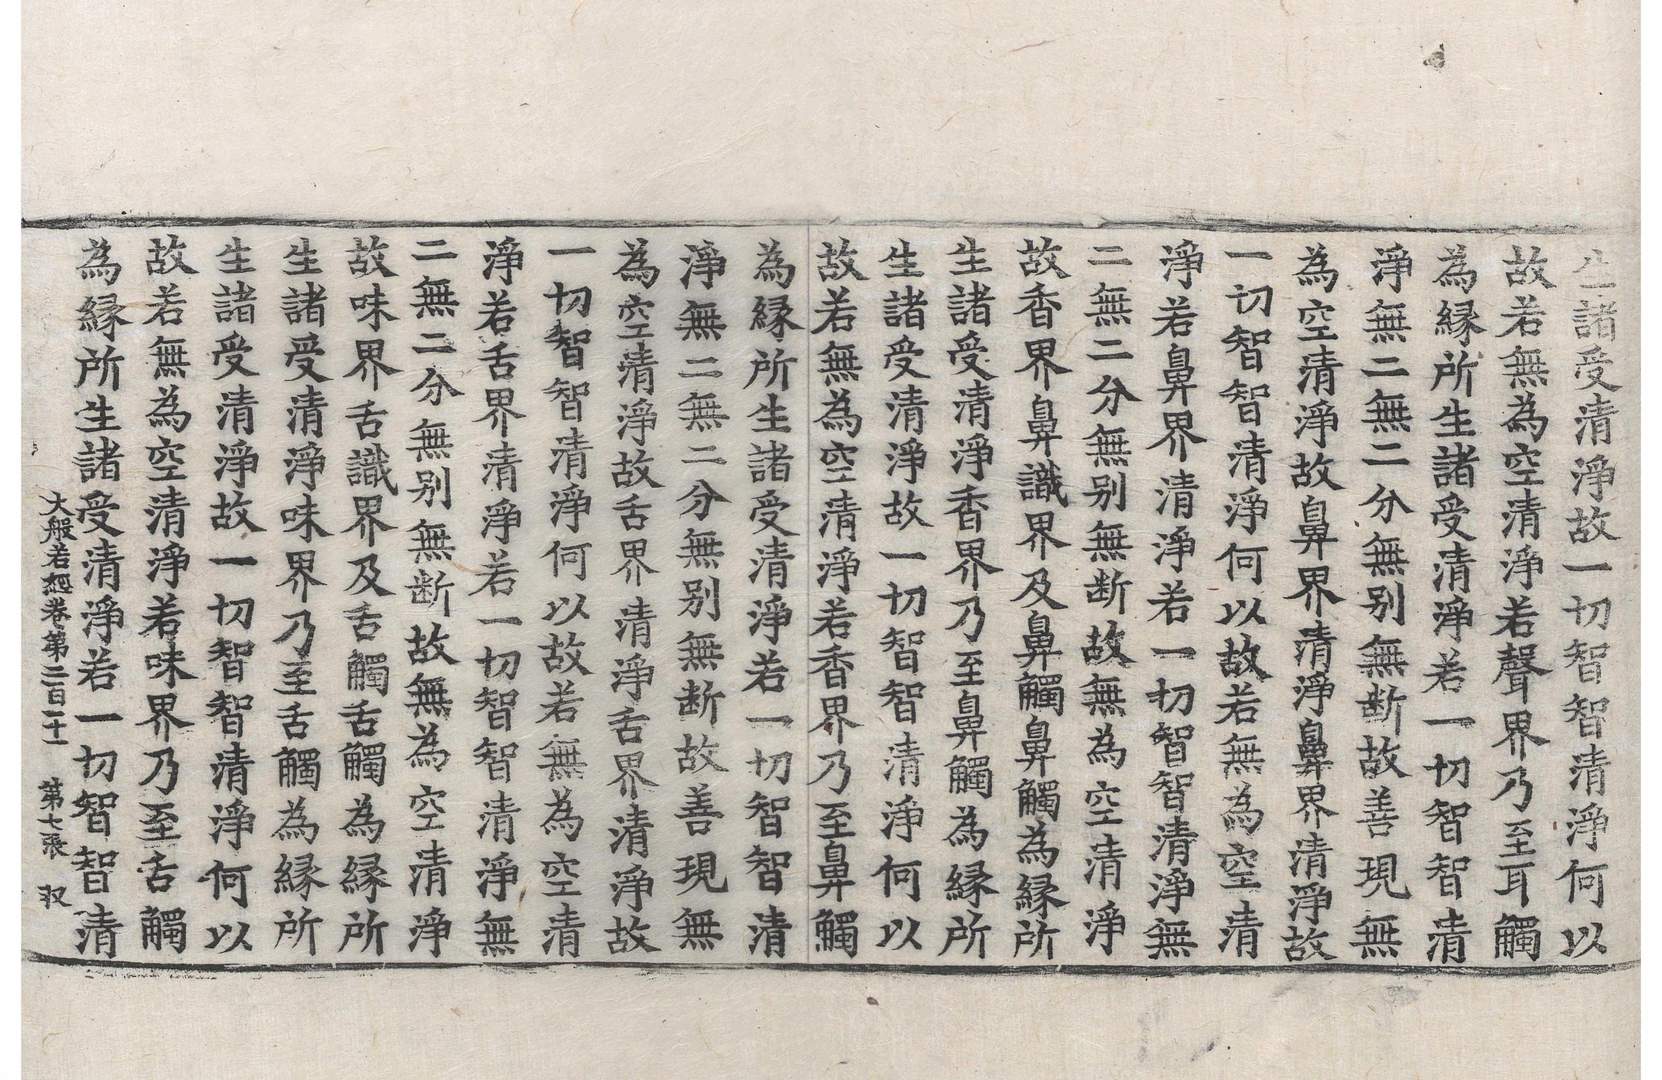 生諸受清淨故一切智智清淨何以
故若無為空清淨若聲界乃至耳觸
為緣所生諸受清淨若一切智智清
淨無二無二分無别無断故善現無
為空清淨故鼻界清淨鼻界清淨故
一切智智清淨何以故若無為空清
淨若鼻界清淨若一切智智清淨無
二無二分無别無断故無為空清淨
故香界鼻識界及鼻觸鼻觸為緣所
生諸受清淨香界乃至鼻觸為緣所
生諸受清淨故一切智智清淨何以
故若無為空清淨若香界乃至鼻觸
為緣所生諸受清淨若一切智智清
淨無二無二分無别無断故善現無
為空清淨故舌界清淨舌界清淨故
一切智智清淨何以故若無為空清
淨若舌界清淨若一切智智清淨無
二無二分無别無断故無為空清淨
故味界舌識界及舌觸舌觸為緣所
生諸受清淨味界乃至舌觸為緣所
生諸受清淨故一切智智清淨何以
故若無為空清淨若味界乃至舌觸
為緣所生諸受清淨若一切智智清
大般若經卷第二百二十一 第七張 収